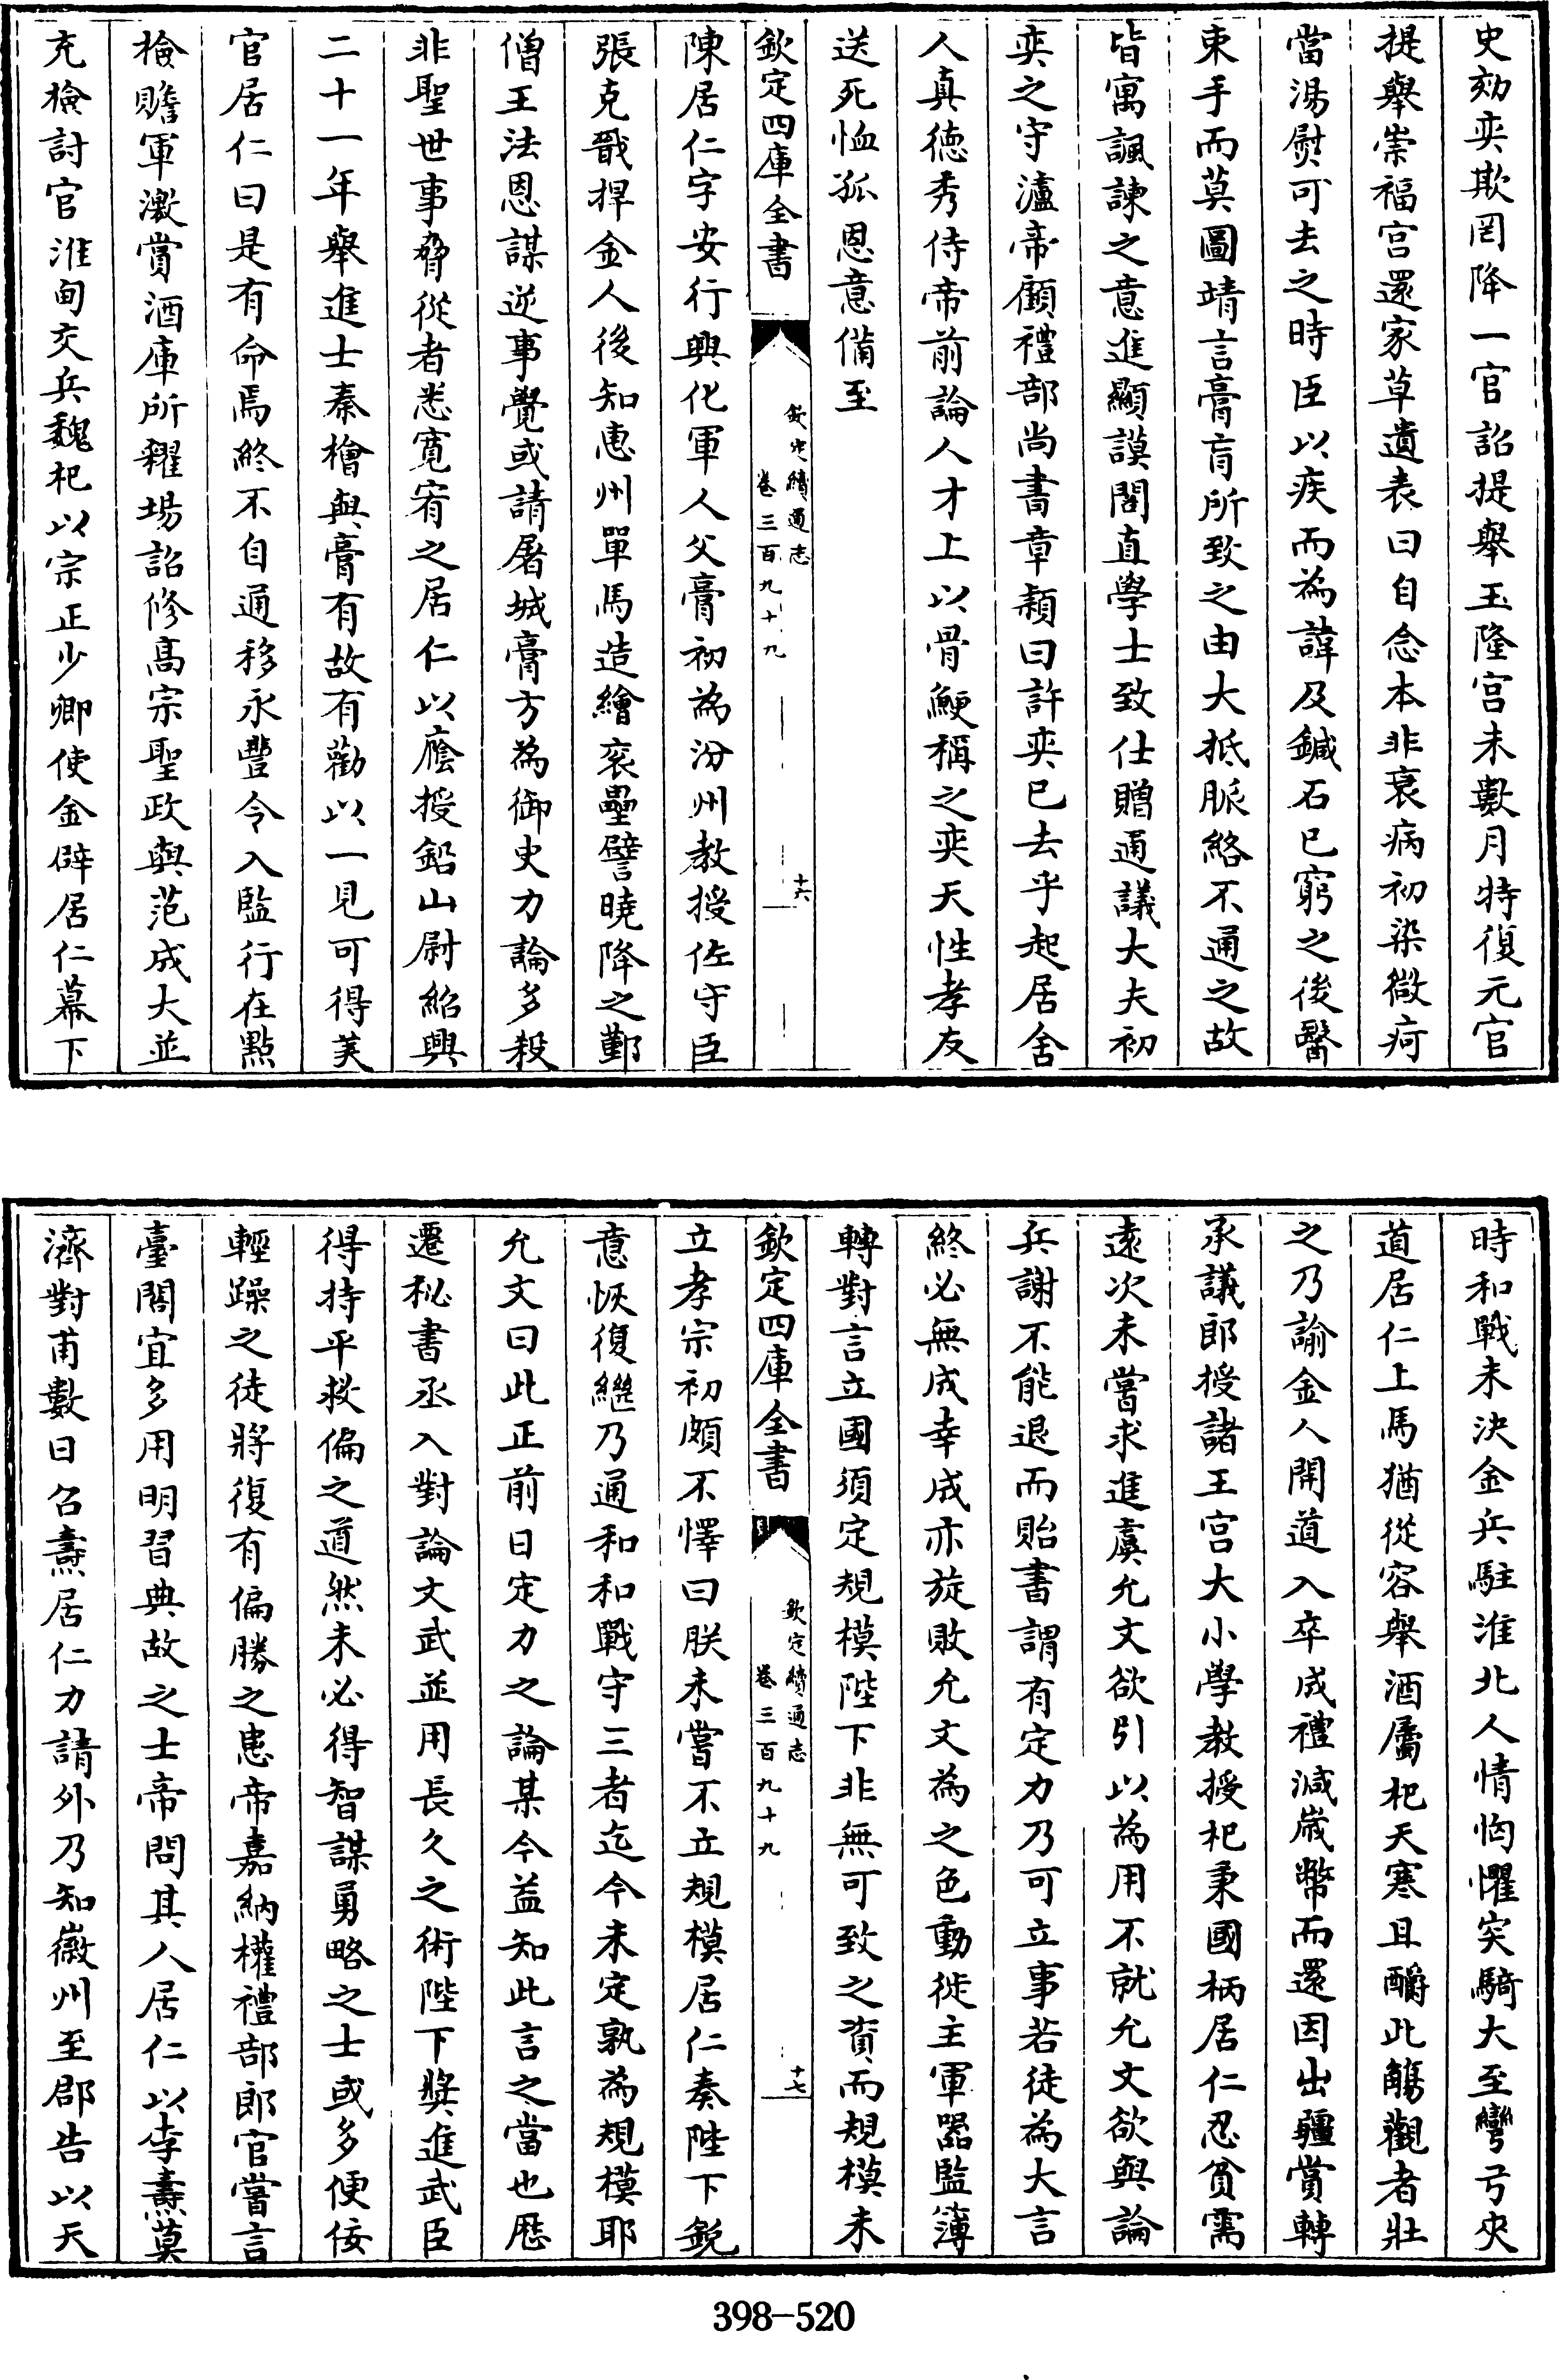 史劾奕欺罔降一官詔提舉玉隆宫未數月特復元官
提舉崇福宫還家草遺表曰自念本非衰病初染微疴
當湯熨可去之時臣以疾而為諱及鍼石已窮之後醫
束手而莫圖靖言膏肓所致之由大抵脈絡不通之故
皆寓諷諫之意進顯謨閣直學士致仕贈通議大夫初
奕之守瀘帝顧禮部尚書章穎曰許奕已去乎起居舍
人真德秀侍帝前論人才上以骨鯁稱之奕天性孝友
送死恤孤恩意備至
欽定四庫全書
欽定續通志
卷三百九十九
十六
陳居仁字安行興化軍人父膏初為汾州教授佐守臣
張克戩捍金人後知惠州單馬造繪衮壘譬曉降之鄞
僧王法恩謀逆事覺或請屠城膏方為御史力論多殺
非聖世事脅從者悉寛宥之居仁以廕授鉛山尉紹興
二十一年舉進士秦檜與膏有故有勸以一見可得美
官居仁曰是有命焉終不自通移永豐令入監行在點
檢贍軍激賞酒庫所糴場詔修髙宗聖政與范成大並
充檢討官淮甸交兵魏杞以宗正少卿使金辟居仁幕下
時和戰未決金兵駐淮北人情恟懼突騎大至彎弓夾
道居仁上馬猶從容舉酒屬杞天寒且釂此觴觀者壯
之乃諭金人開道入卒成禮減歲幣而還因出疆賞轉
承議郎授諸王宫大小學教授杞秉國柄居仁忍貧需
逺次未嘗求進虞允文欲引以為用不就允文欲與論
兵謝不能退而貽書謂有定力乃可立事若徒為大言
終必無成幸成亦旋敗允文為之色動徙主軍器監簿
轉對言立國須定規模陛下非無可致之資而規模未
欽定四庫全書
欽定續通志
卷三百九十九
十七
立孝宗初頗不懌曰朕未嘗不立規模居仁奏陛下鋭
意恢復繼乃通和和戰守三者迄今未定孰為規模耶
允文曰此正前日定力之論某今益知此言之當也歴
遷秘書丞入對論文武並用長久之術陛下奬進武臣
得持平救偏之道然未必得智謀勇略之士或多便佞
輕躁之徒將復有偏勝之患帝嘉納權禮部郎官嘗言
臺閣宜多用明習典故之士帝問其人居仁以李燾莫
濟對甫數日召燾居仁力請外乃知徽州至郡告以天
398-520